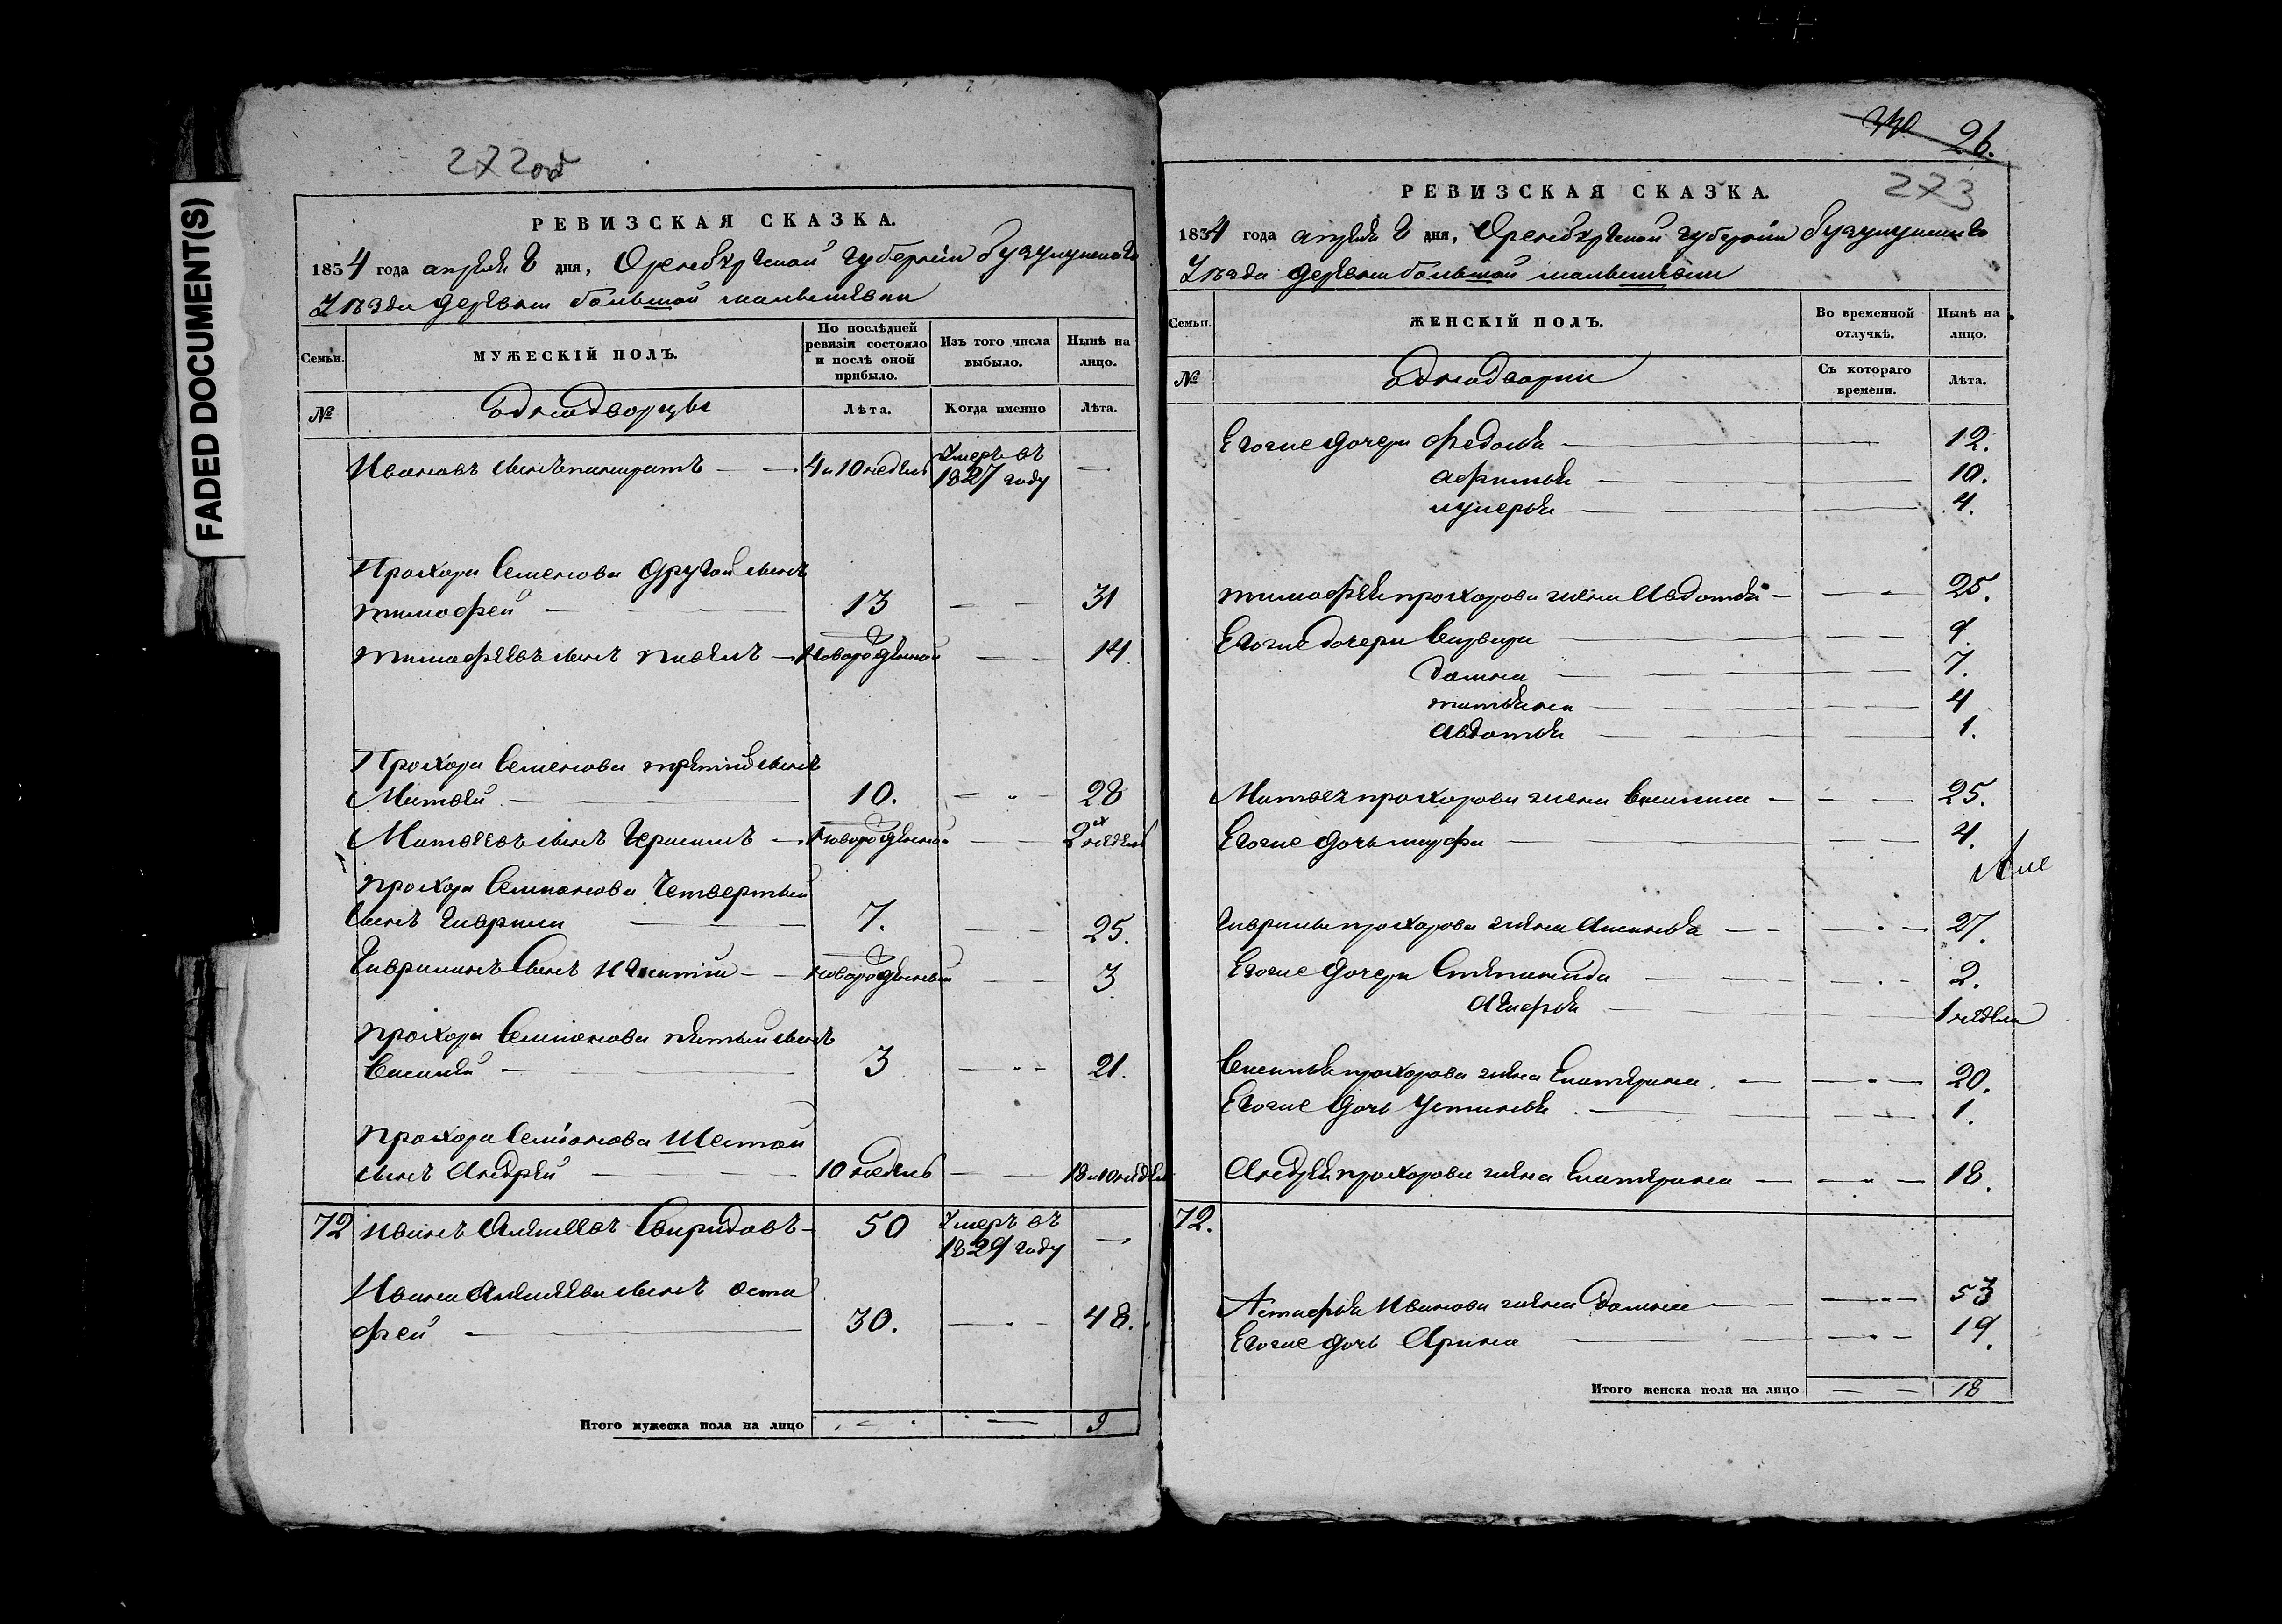 FADED DOCUMENT(S)
272об
РЕВИЗСКАЯ СКАЗКА.
1834 года апреля 8 дня, Оренбургской губернии Бузулукскаго
Уезда деревни большой малышевки
Семьи.
МУЖЕСКІЙ ПОЛЪ.
По послѣдней ревизіи состояло и послѣ оной прибыло.
Изъ того числа выбыло.
Нынѣ на лицо.
№
Однодворцы
Лѣта.
Когда именно
Лѣта.
Ивановъ сынъ панкратъ — 4 и 10 недель умеръ въ 1827 году —
Прохора Семенова другой сынъ
тимофей — 13 — — 31
тимофеевъ сынъ павелъ — новорожденной — — 14
Прохора Семенова третий сынъ
Матвей — 10. — " — 28
Матвеевъ сынъ Герасимъ — новорожденной — — 2х недель
прохора Семионова Четвертый
сынъ Гаврила — 7. — — 25.
Гавриминъ Сынъ Игнатий — новорожденный — — 3
прохора Семионова пятый сынъ
Василей — 3 — " — 21.
прохора Семионова Шестой
сынъ Андрей — 10 недель — — 18 и 10 недель
72 Иванъ Алексеевъ Свиридовъ — 50 умеръ въ 1829 году —
Ивана Алексеева сынъ Оста
фей — 30. — " — 48.
Итого мужеска пола на лицо — — 9
26.
273
РЕВИЗСКАЯ СКАЗКА.
1834 года апреля 8 дня, Оренбургской губернии бузулукскаго
Уезда деревни большой малышевки
Семьи.
ЖЕНСКІЙ ПОЛЪ.
Во временной отлучкѣ.
Нынѣ на лицо.
№
Однодворки
Съ котораго времени.
Лѣта.
Евоже дочери федосья — — 12.
афимья — — 10.
лукерья — — 4.
тимофея прохорова жена Авдотья — — 25.
Евоже дочери — — 9.
домна — — 7.
татьяна — — 4
Авдотья — — 1.
Матвея прохорова жена — — 25.
Евоже дочь марфа — — 4.
Гаврилы прохорова жена Аксинья — — 27.
Евоже дочери Степанида — — 2.
— — 1 неделя
Василья прохорова жена Екатерина. — — 20.
Евоже дочь Устинья. — — 1.
Андрея прохорова жена Екатерина — — 18.
72.
Астафья Иванова жена домна — — 53
Евоже дочь Арина — — 19.
Итого женска пола на лицо — — 18